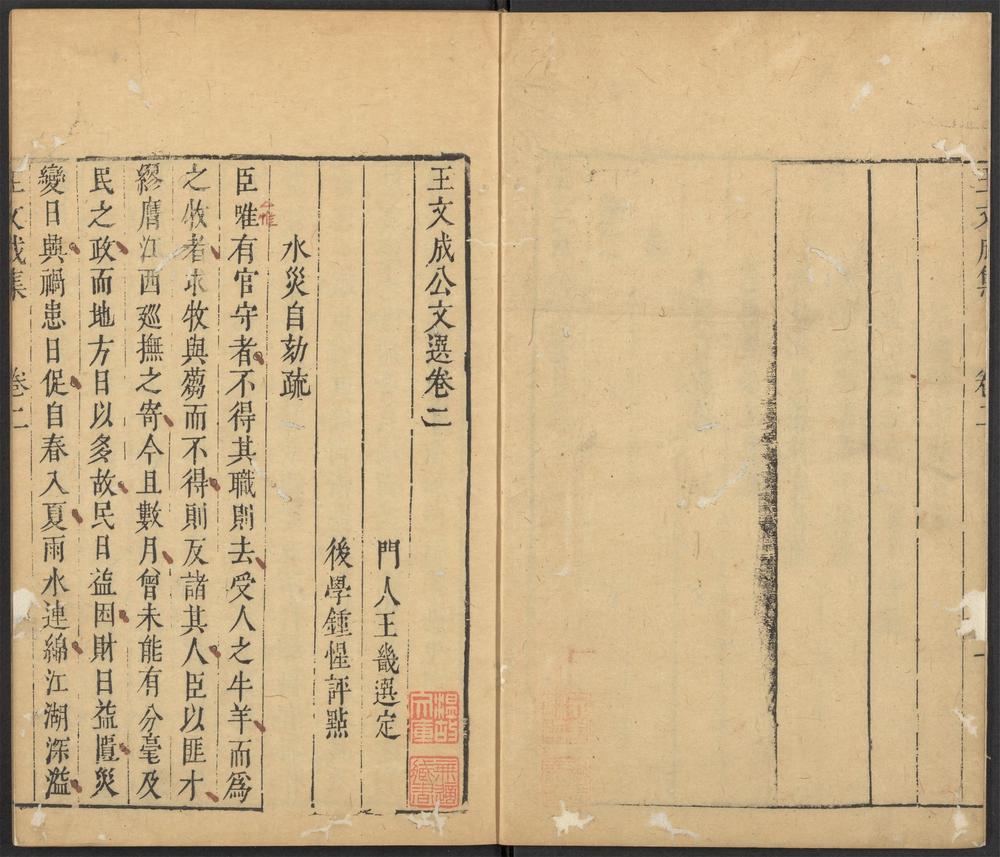 王文成集
卷二
一
王文成公文選卷二
門人王畿選定
後學鍾惺評點
水災自劾疏
臣唯有官守者不得其職則去受人之牛羊而爲
惟
之牧者求牧與蒭而不得則反諸其人臣以匪才
繆膺江西廵撫之寄今且數月曾未能有分毫及
民之政而地方日以多故民日益困財日益匱災
變日興禍患日促自春入夏雨水連綿江湖深溢
王文成集
卷二